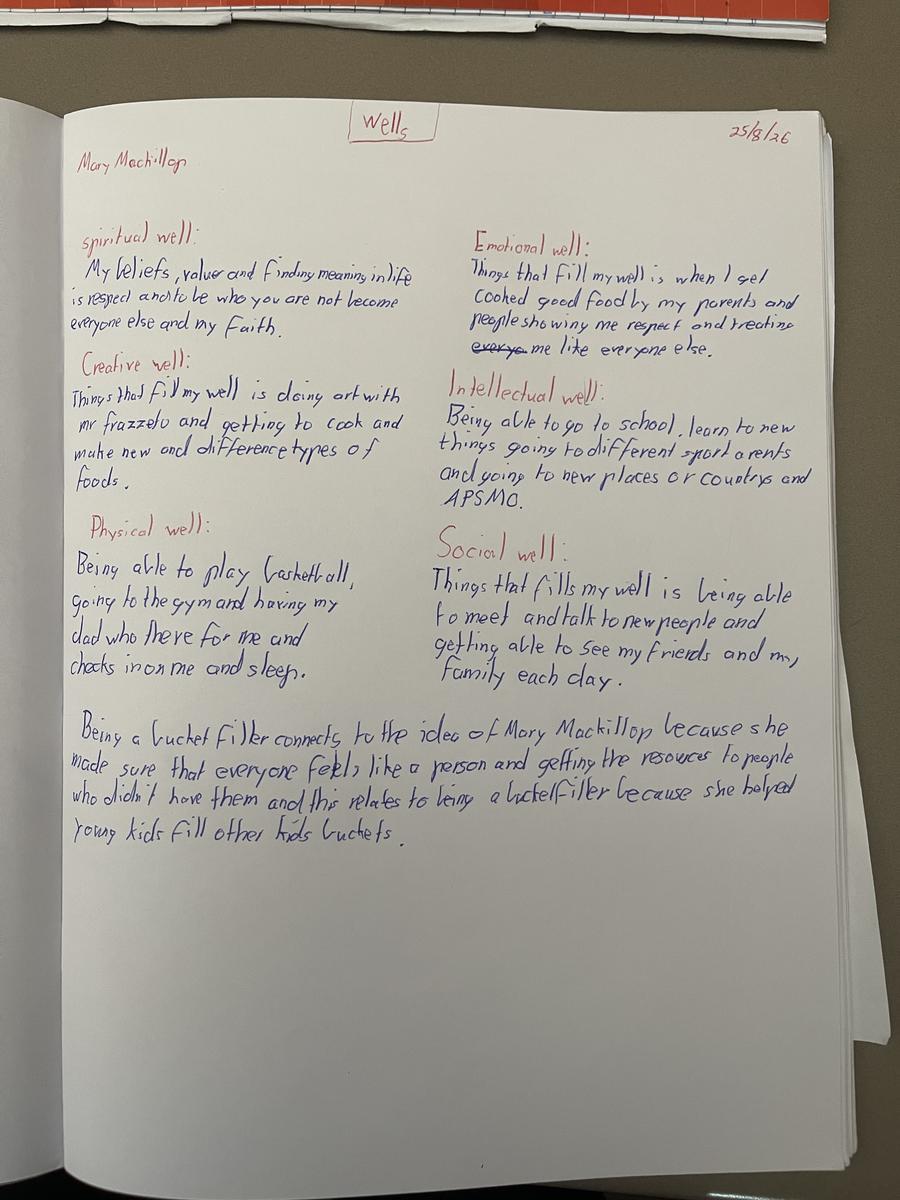 Wells
25/8/26
Mary Mackillop
spiritual well:
My beliefs, values and finding meaning in life
is respect and to be who you are not become
everyone else and my faith.
Creative well:
Things that fill my well is doing art with
mr frazzeto and getting to cook and
make new and difference types of
foods.
Physical well:
Being able to play basketball,
going to the gym and having my
dad who there for me and
checks in on me and sleep.
Emotional well:
Things that fill my well is when I get
cooked good food by my parents and
people showing me respect and treating
me like everyone else.
Intellectual well:
Being able to go to school, learn to new
things going to different sport
and going to new places or countrys and
APSMO.
Social well:
Things that fills my well is being able
to meet and talk to new people and
getting able to see my friends and my
family each day.
Being a bucket filler connects to the idea of Mary Mackillop because she
made sure that everyone feels like a person and getting the resources to people
who didn't have them and this relates to being a bucketfiller because she helped
young kids fill other kids buckets.